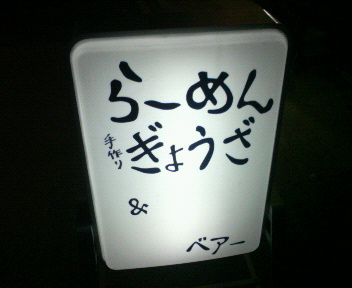 らーめん
手作り
ぎょうざ
&
ベアー